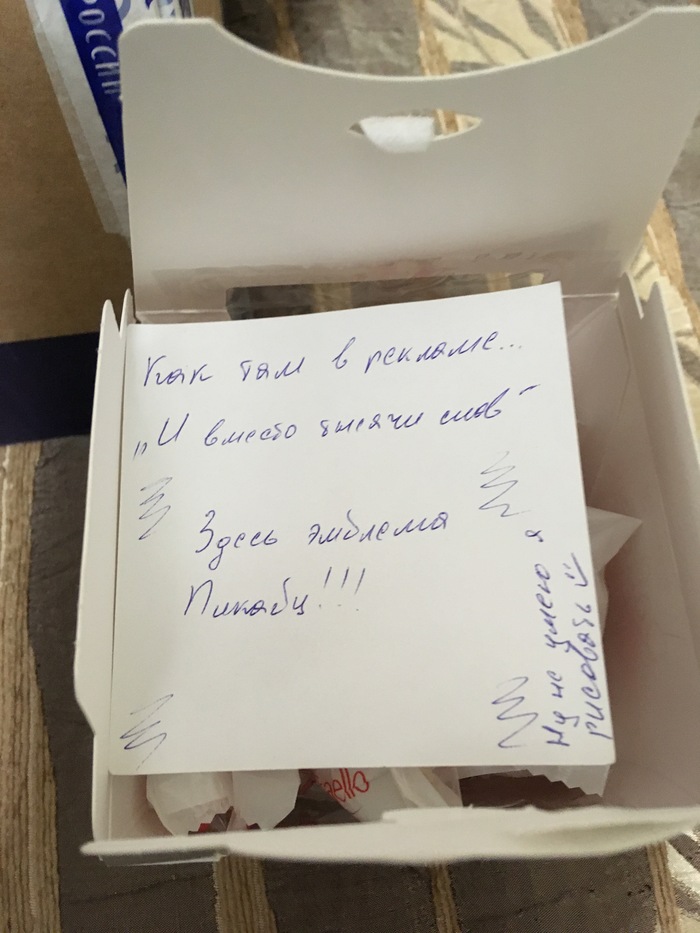 РОССИИ
Как там в рекламе...
„И вместо тысячи слов"
Здесь эмблема
Пикабу!!!
Ну не умею я
рисовать
aello